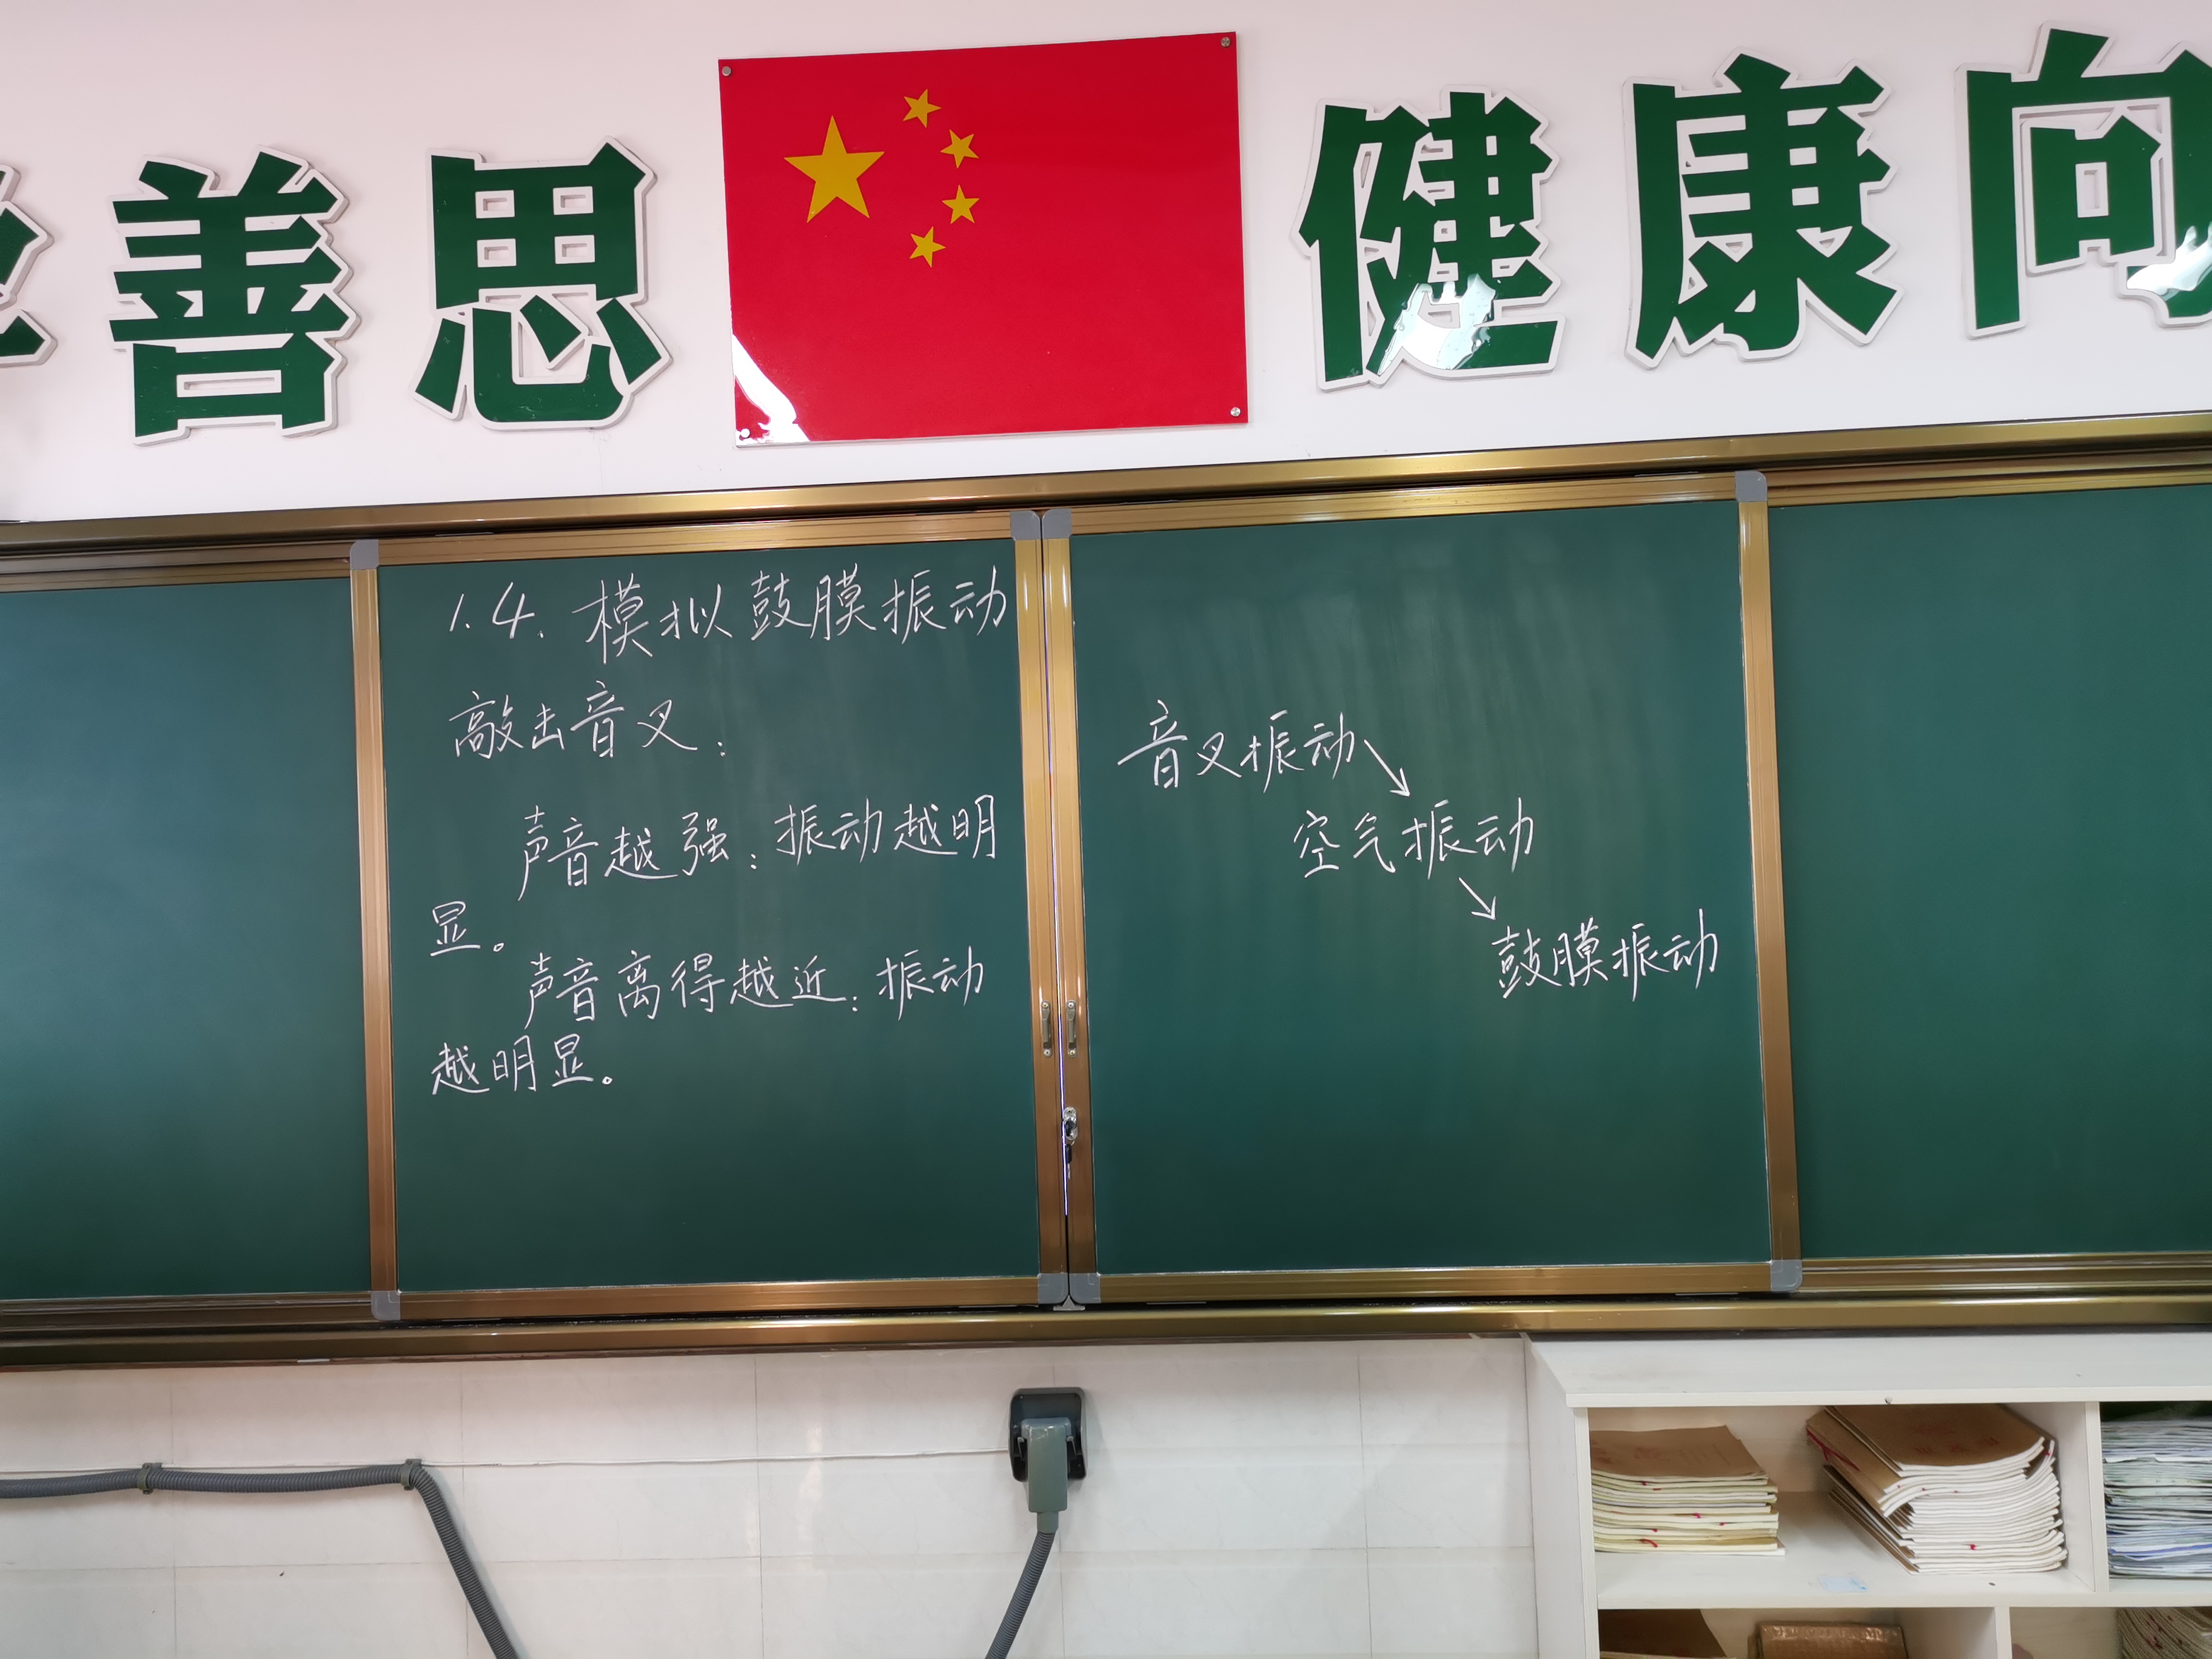 善思
健康向
1.4.模拟鼓膜振动
敲击音叉:
声音越强:振动越明
显。
声音离得越近:振动
越明显。
音叉振动↘
空气振动
↘
鼓膜振动